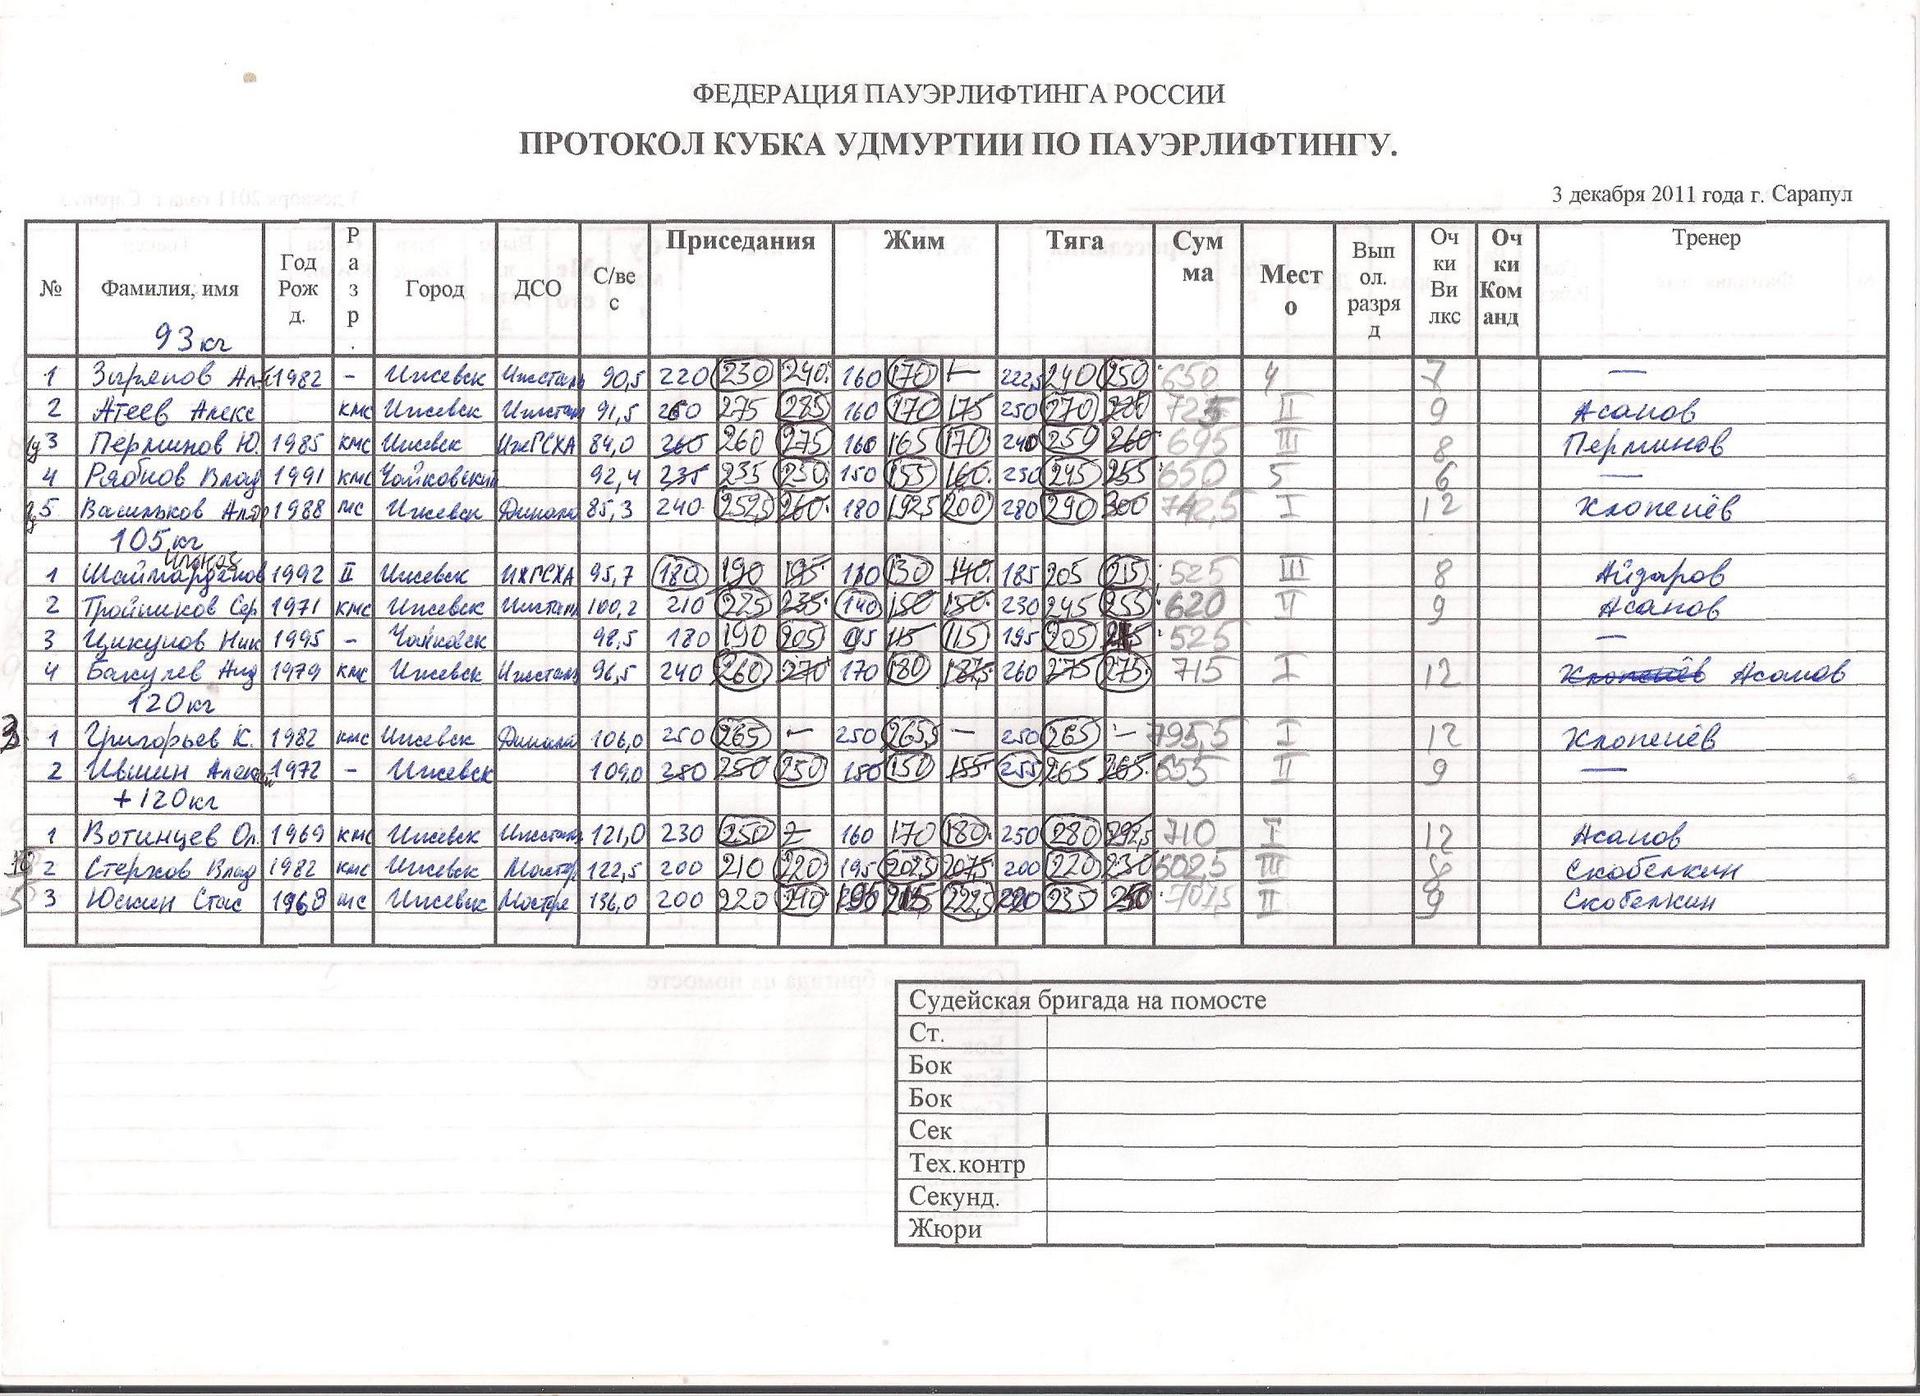 ФЕДЕРАЦИЯ ПАУЭРЛИФТИНГА РОССИИ
ПРОТОКОЛ КУБКА УДМУРТИИ ПО ПАУЭРЛИФТИНГУ.
3 декабря 2011 года г. Сарапул
№ Фамилия, имя Год Рож д. Разр. Город ДСО С/вес Приседания Жим Тяга Сумма Место Выпол. разряд Очки Вилкс Очки Команд Тренер
93 кг
1 1982 - Ижевск Ижсталь 90,5 220 230 240 160 170 - 222,5 240 250 650 4 7 —
2 Атеев Алекс кмс Ижевск Ижсталь 91,5 260 275 285 160 170 175 250 270 280 725 II 9 Асанов
3 Перминов Ю. 1985 кмс Ижевск ИжГСХА 84,0 260 260 275 160 165 170 240 250 260 695 III 8 Перминов
4 Рябков Влад 1991 кмс Чайковский 92,4 235 235 250 150 155 160 230 245 255 650 5 6 —
5 Васильков 1988 мс Ижевск Динамо 85,3 240 252,5 260 180 192,5 200 280 290 300 742,5 I 12 Хлопенёв
105 кг
1 Шаймарданов 1992 II Ижевск ИжГСХА 95,7 180 190 195 110 130 140 185 205 215 525 III 8 Айдаров
2 Тройников Сер 1971 кмс Ижевск Ижсталь 100,2 210 225 235 140 150 150 230 245 255 620 II 9 Асанов
3 Цикунов Ник 1995 - Чайковск 98,5 180 190 205 115 115 195 205 525 —
4 Бакулев Анд 1979 кмс Ижевск Ижсталь 96,5 240 260 270 170 180 187,5 260 275 275 715 I 12 Хлопенёв Асанов
120 кг
1 Григорьев К. 1982 кмс Ижевск Динамо 106,0 250 265 - 250 265,5 - 250 265 - 795,5 I 12 Хлопенёв
2 Ившин Алексей 1972 - Ижевск 109,0 250 250 150 150 155 255 265 265 655 II 9 —
+120 кг
1 Вотинцев Ол. 1969 кмс Ижевск Ижсталь 121,0 230 250 - 160 170 180 250 280 292,5 710 I 12 Асанов
2 Стерхов Влад 1982 кмс Ижевск 122,5 200 210 220 195 202,5 207,5 200 220 230 602,5 III 8 Скобелкин
3 Юскин Стас 1968 мс Ижевск 136,0 200 220 240 195 215 222,5 220 235 250 707,5 II 9 Скобелкин
Судейская бригада на помосте
Ст.
Бок
Бок
Сек
Тех.контр
Секунд.
Жюри